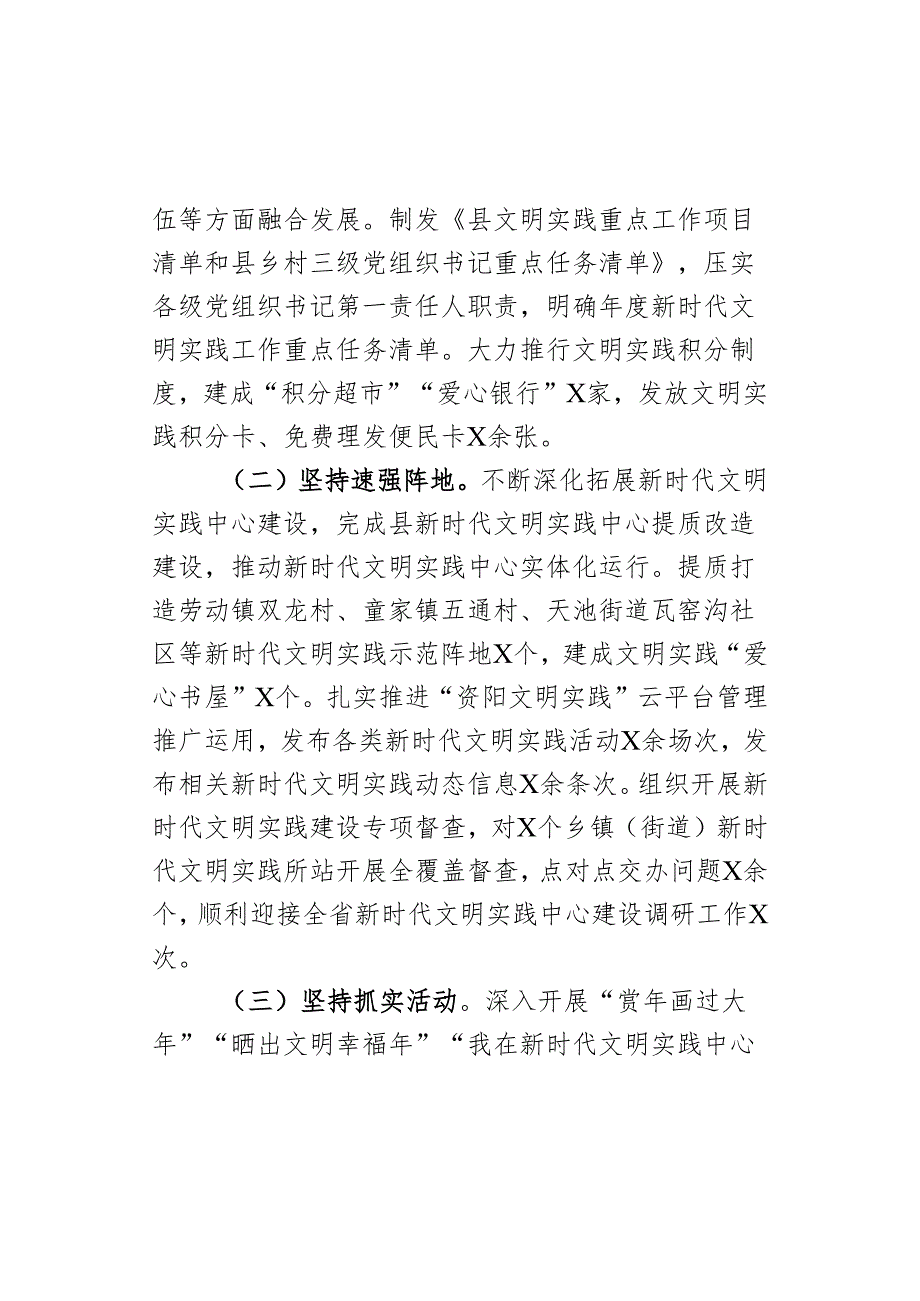 伍等方面融合发展。制发《县文明实践重点工作项目
清单和县乡村三级党组织书记重点任务清单》，压实
各级党组织书记第一责任人职责，明确年度新时代文
明实践工作重点任务清单。大力推行文明实践积分制
度，建成“积分超市”“爱心银行”X家，发放文明实
践积分卡、免费理发便民卡X余张。
（二）坚持速强阵地。不断深化拓展新时代文明
实践中心建设，完成县新时代文明实践中心提质改造
建设，推动新时代文明实践中心实体化运行。提质打
造劳动镇双龙村、童家镇五通村、天池街道瓦窑沟社
区等新时代文明实践示范阵地X个，建成文明实践“爱
心书屋”X个。扎实推进“资阳文明实践”云平台管理
推广运用，发布各类新时代文明实践活动X余场次，发
布相关新时代文明实践动态信息X余条次。组织开展新
时代文明实践建设专项督查，对X个乡镇（街道）新时
代文明实践所站开展全覆盖督查，点对点交办问题X余
个，顺利迎接全省新时代文明实践中心建设调研工作X
次。
（三）坚持抓实活动。深入开展“赏年画过大
年”“晒出文明幸福年”“我在新时代文明实践中心